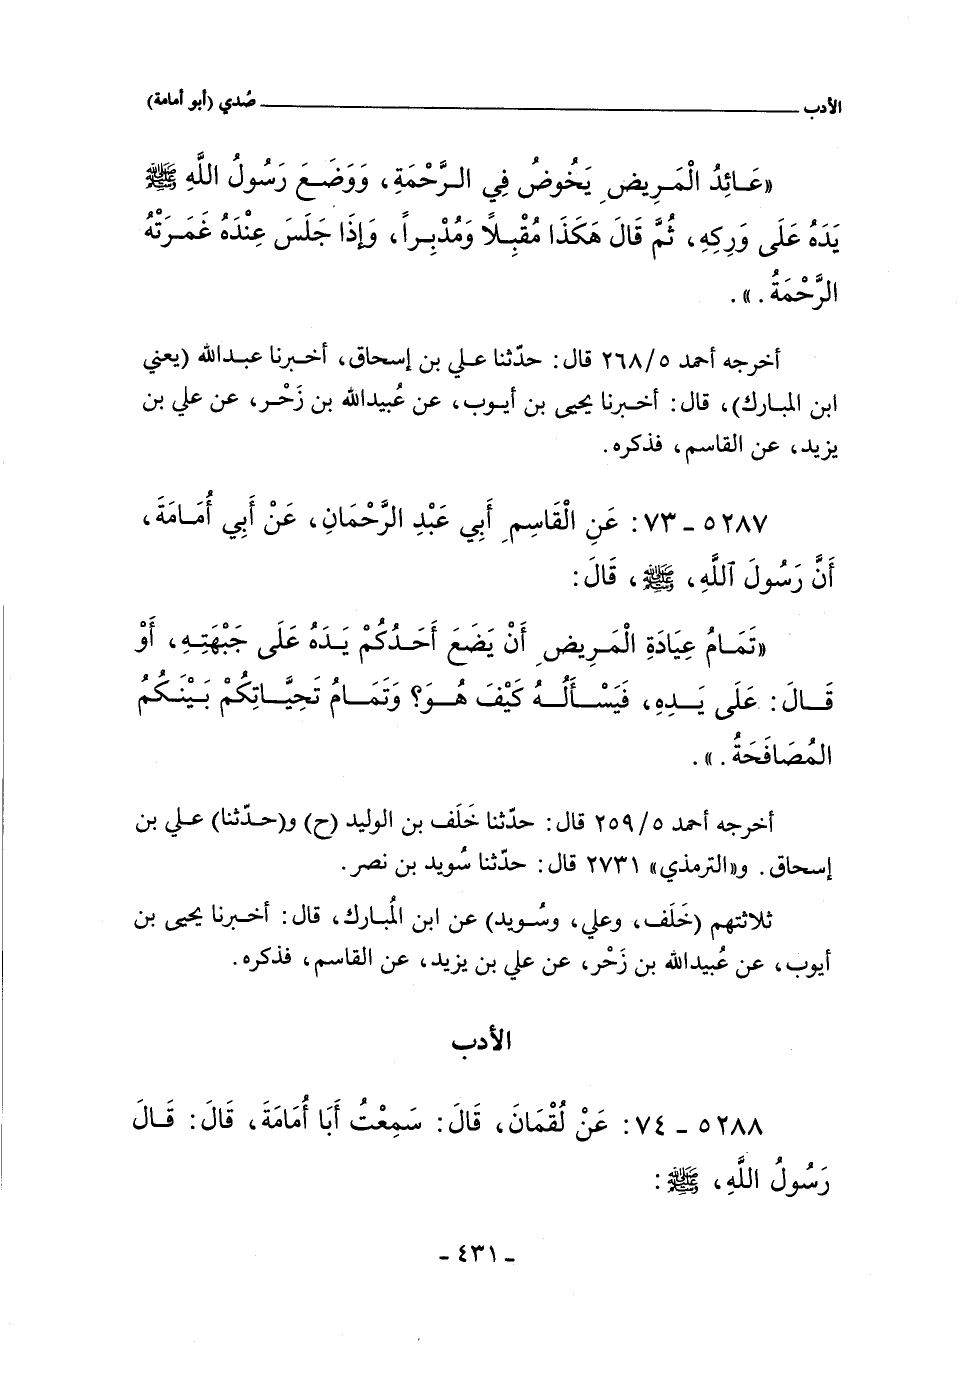 الأدب ــــــــــــــــ صُدي (أبو أمامة)
«عَـائِدُ الْمَـرِيضِ يَخُوضُ فِي الـرَّحْمَةِ، وَوَضَـعَ رَسُولُ اللَّهِ ﷺ
يَدَهُ عَلَى وَرِكِهِ، ثُمَّ قَالَ هَكَذَا مُقْبِلًا وَمُدْبِراً، وَإِذَا جَلَسَ عِنْدَهُ غَمَـرَتْهُ
الرَّحْمَةُ.».
أخرجه أحمد ٥/٢٦٨ قال: حدّثنا علي بن إسحاق، أخبرنا عبدالله (يعني
ابن المبارك)، قال: أخبرنا يحيى بن أيوب، عن عُبيدالله بن زَحْر، عن علي بن
يزيد، عن القاسم، فذكره.
٥٢٨٧ ـ ٧٣: عَنِ الْقَاسِمِ أَبِي عَبْدِ الرَّحْمَانِ، عَنْ أَبِي أُمَامَةَ،
أَنَّ رَسُولَ ٱللَّهِ، ﷺ، قَالَ:
«تَمَـامُ عِيَادَةِ الْمَـرِيضِ أَنْ يَضَعَ أَحَدُكُمْ يَدَهُ عَلَى جَبْهَتِهِ، أَوْ
قَـالَ: عَلَى يَـدِهِ، فَيَسْـأَلُـهُ كَيْفَ هُـوَ؟ وَتَمَـامُ تَحِيَّـاتِكُمْ بَيْنَكُمُ
المُصَافَحَةُ.».
أخرجه أحمد ٥/٢٥٩ قال: حدّثنا خَلَف بن الوليد (ح) و(حدّثنا) علي بن
إسحاق. و«الترمذي» ٢٧٣١ قال: حدّثنا سُويد بن نصر.
ثلاثتهم (خَلَف، وعلي، وسُويد) عن ابن المُبارك، قال: أخبرنا يحيى بن
أيوب، عن عُبيدالله بن زَحْر، عن علي بن يزيد، عن القاسم، فذكره.
الأدب
٥٢٨٨ ـ ٧٤: عَنْ لُقْمَانَ، قَالَ: سَمِعْتُ أَبَا أُمَامَةَ، قَالَ: قَـالَ
رَسُولُ اللَّهِ، ﷺ:
ـ ٤٣١ ـ